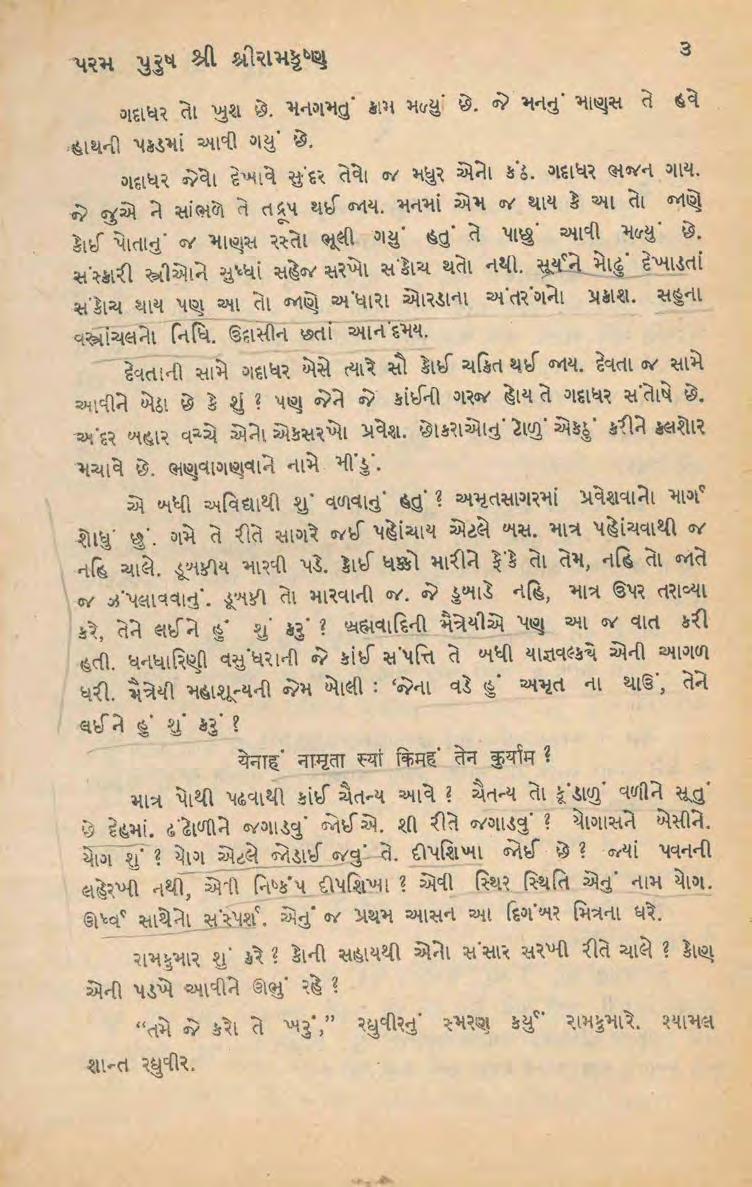 પરમ પુરુષ શ્રી શ્રીરામકૃષ્ણ
૩
ગદાધર તો ખુશ છે. મનગમતું કામ મળ્યું છે. જે મનનું માણસ તે હવે
હાથની પકડમાં આવી ગયું છે.
ગદાધર જેવો દેખાવે સુંદર તેવો જ મધુર એનો કંઠ. ગદાધર ભજન ગાય.
જે જુએ ને સાંભળે તે તદ્રૂપ થઈ જાય. મનમાં એમ જ થાય કે આ તો જાણે
કોઈ પોતાનું જ માણસ રસ્તો ભૂલી ગયું હતું તે પાછું આવી મળ્યું છે.
સંસ્કારી સ્ત્રીઓને સુધ્ધાં સહેજ સરખો સંકોચ થતો નથી. સૂર્યને મોઢું દેખાડતાં
સંકોચ થાય પણ આ તો જાણે અંધારા ઓરડાના અંતરંગનો પ્રકાશ. સહુના
વસ્ત્રાંચલનો નિધિ. ઉદાસીન છતાં આનંદમય.
દેવતાની સામે ગદાધર બેસે ત્યારે સૌ કોઈ ચકિત થઈ જાય. દેવતા જ સામે
આવીને બેઠા છે કે શું ? પણ જેને જે કાંઈની ગરજ હોય તે ગદાધર સંતોષે છે.
અંદર બહાર વચ્ચે એનો એકસરખો પ્રવેશ. છોકરાઓનું ટોળું એકઠું કરીને કલશોર
મચાવે છે. ભણવાગણવાને નામે મીંડું.
એ બધી અવિદ્યાથી શું વળવાનું હતું ? અમૃતસાગરમાં પ્રવેશવાનો માર્ગ
શોધું છું. ગમે તે રીતે સાગરે જઈ પહોંચાય એટલે બસ. માત્ર પહોંચવાથી જ
નહિ ચાલે. ડૂબકીય મારવી પડે. કોઈ ધક્કો મારીને ફેંકે તો તેમ, નહિ તો જાતે
જ ઝંપલાવવાનું. ડૂબકી તો મારવાની જ. જે ડુબાડે નહિ, માત્ર ઉપર તરાવ્યા
કરે, તેને લઈને હું શું કરું ? બ્રહ્મવાદિની મૈત્રેયીએ પણ આ જ વાત કરી
હતી. ધનધારિણી વસુંધરાની જે કાંઈ સંપત્તિ તે બધી યાજ્ઞવલ્ક્યે એની આગળ
ધરી. મૈત્રેયી મહાશૂન્યની જેમ બોલી : ‘જેના વડે હું અમૃત ના થાઉં, તેને
લઈને હું શું કરું ?
येनाहं नामृता स्यां किमहं तेन कुर्याम ?
માત્ર પોથી પઢવાથી કાંઈ ચૈતન્ય આવે ? ચૈતન્ય તો કૂંડાળું વળીને સૂતું
છે દેહમાં. ઢંઢોળીને જગાડવું જોઈએ. શી રીતે જગાડવું ? યોગાસને બેસીને.
યોગ શું ? યોગ એટલે જોડાઈ જવું તે. દીપશિખા જોઈ છે ? જ્યાં પવનની
લહેરખી નથી, એની નિષ્કંપ દીપશિખા ? એવી સ્થિર સ્થિતિ એનું નામ યોગ.
ઊર્ધ્વ સાથેનો સંસ્પર્શ. એનું જ પ્રથમ આસન આ દિગંબર મિત્રના ઘરે.
રામકુમાર શું કરે ? કોની સહાયથી એનો સંસાર સરખી રીતે ચાલે ? કોણ
એની પડખે આવીને ઊભું રહે ?
“તમે જે કરો તે ખરું,” રઘુવીરનું સ્મરણ કર્યું રામકુમારે. શ્યામલ
શાન્ત રઘુવીર.